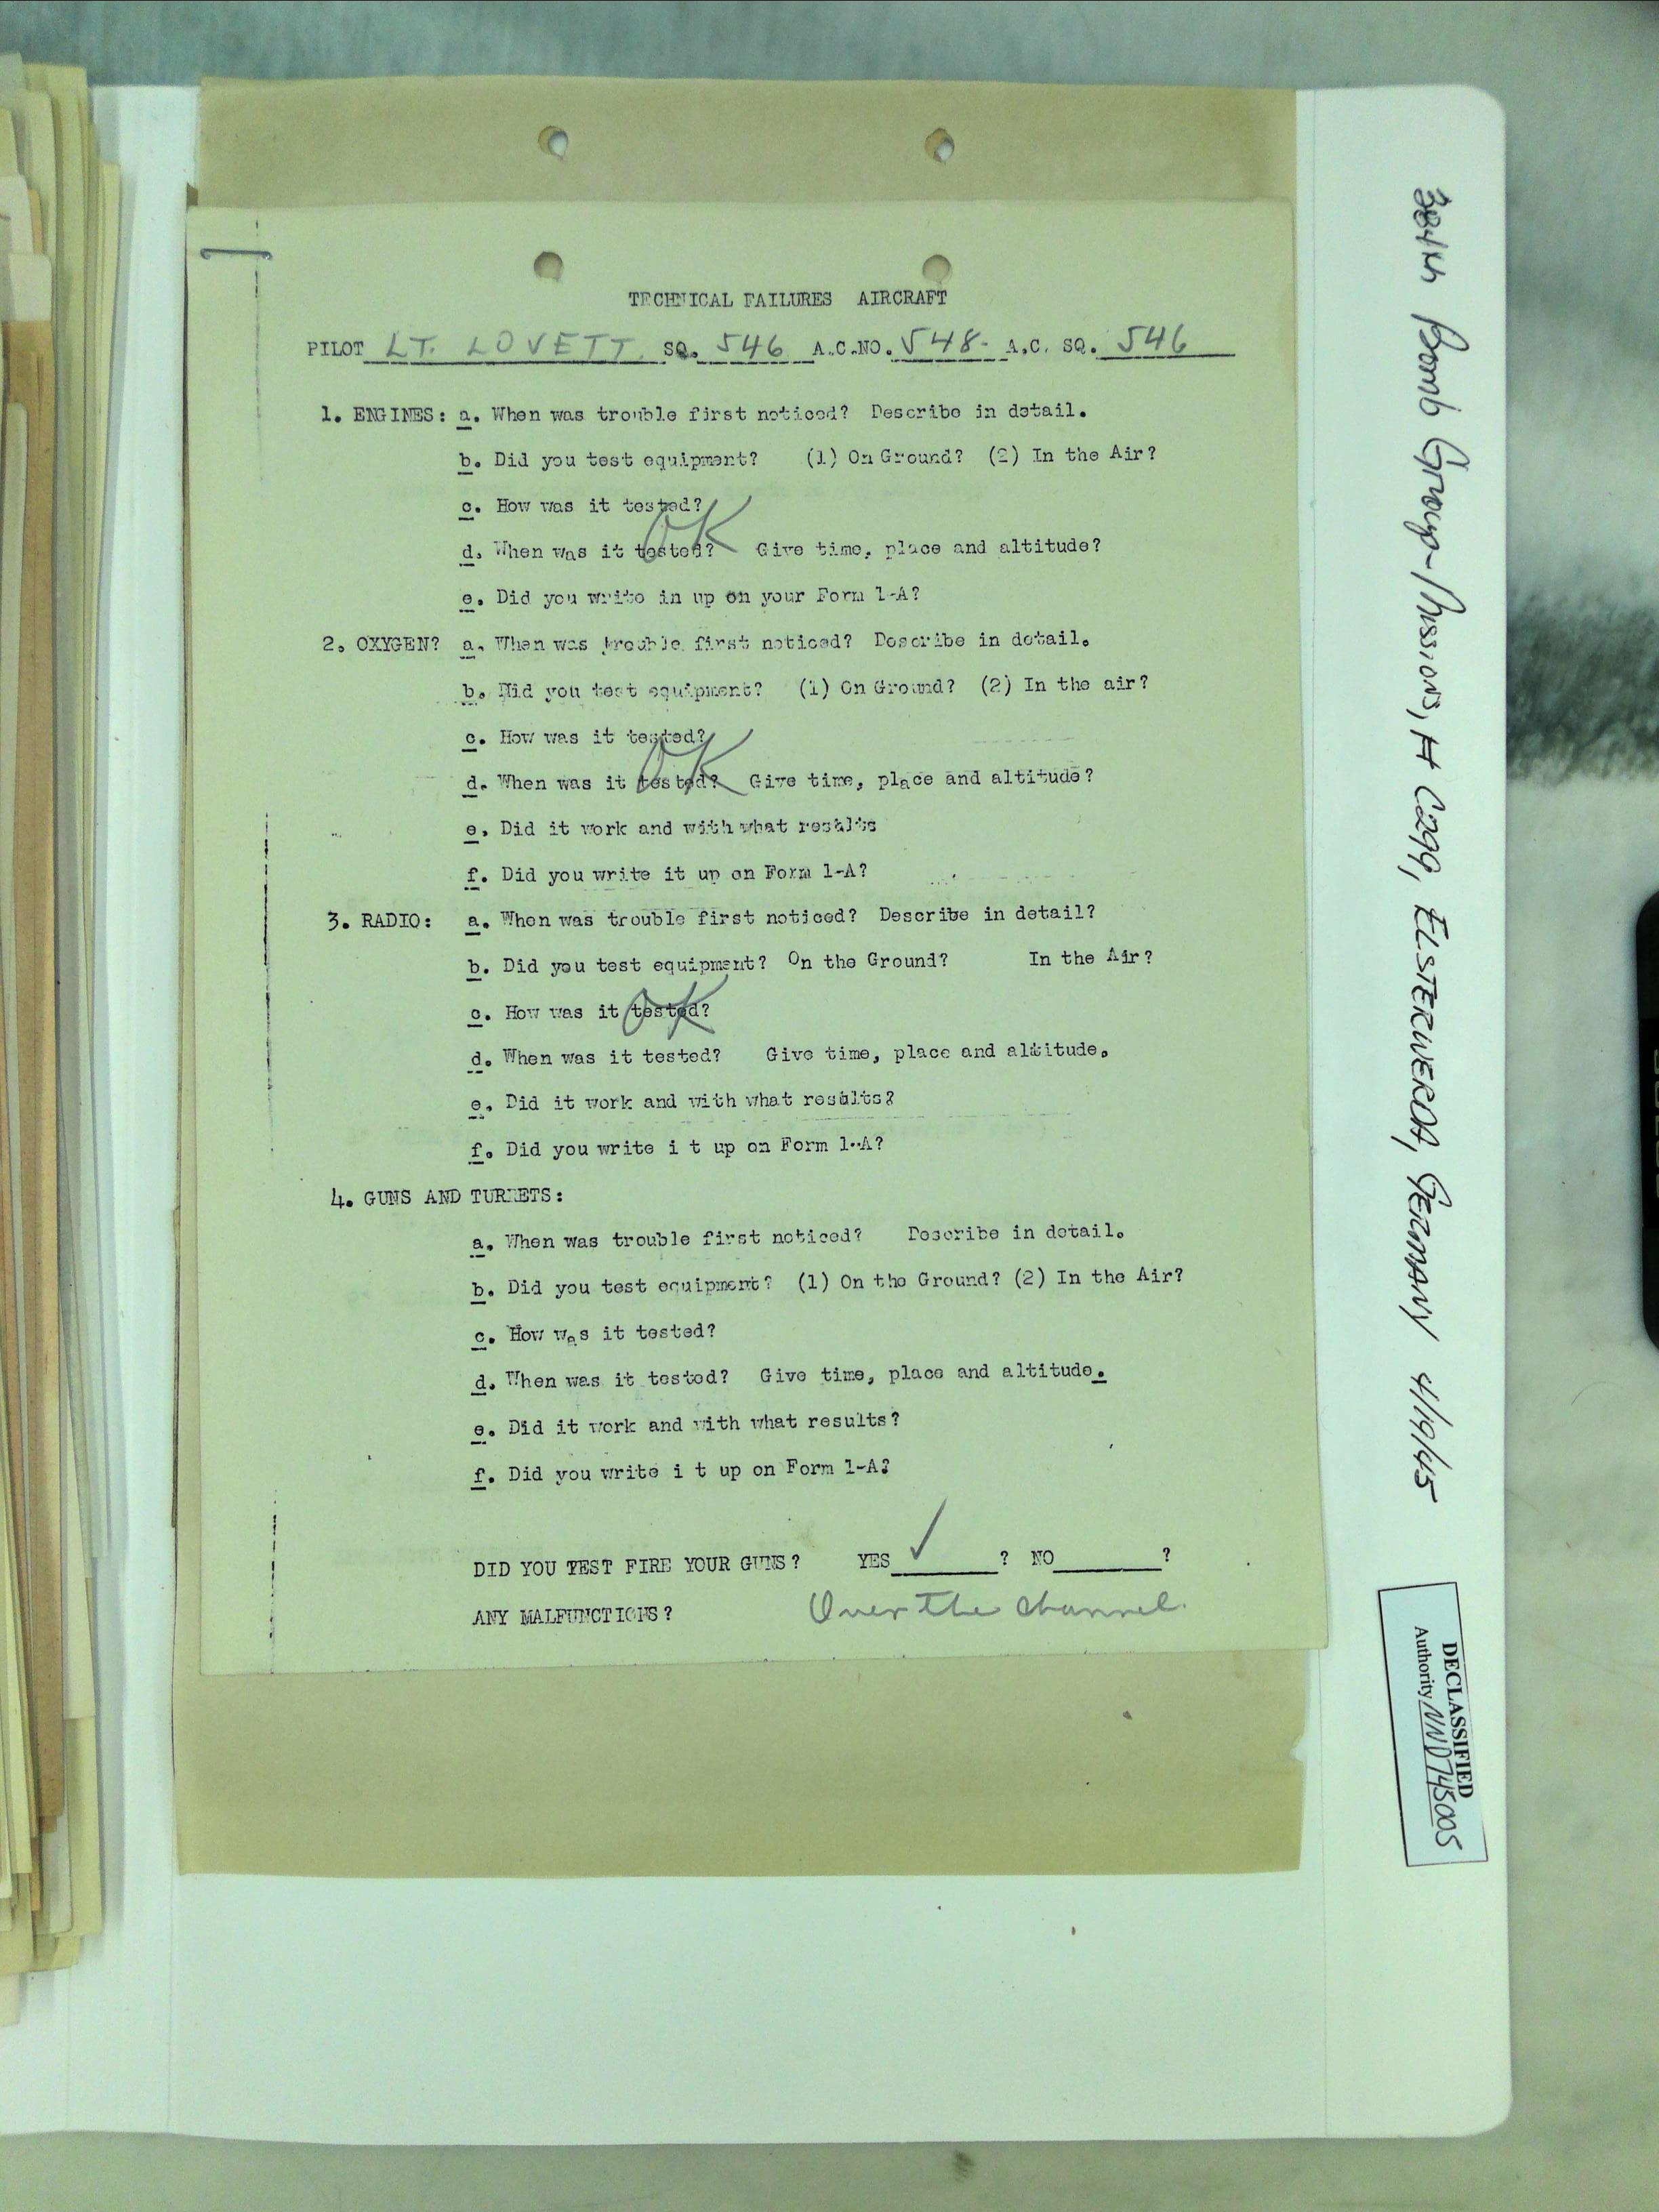 TECHNICAL FAILURES AIRCRAFT
PILOT LT. LOVETT SQ. 546 A.C.NO. 548- A.C. SQ. 546
1. ENGINES: a. When was trouble first noticed? Describe in detail.
b. Did you test equipment? (1) On Ground? (2) In the Air?
c. How was it tested?
OK
d. When was it tested? Give time, place and altitude?
e. Did you write in up on your Form 1-A?
2. OXYGEN? a. When was trouble first noticed? Describe in detail.
b. Did you test equipment? (1) On Ground? (2) In the air?
c. How was it tested?
OK
d. When was it tested? Give time, place and altitude?
e. Did it work and with what results
f. Did you write it up on Form 1-A?
3. RADIO: a. When was trouble first noticed? Describe in detail?
b. Did you test equipment? On the Ground? In the Air?
c. How was it tested?
OK
d. When was it tested? Give time, place and altitude.
e. Did it work and with what results?
f. Did you write i t up on Form 1-A?
4. GUNS AND TURRETS:
a. When was trouble first noticed? Describe in detail.
b. Did you test equipment? (1) On the Ground? (2) In the Air?
c. How was it tested?
d. When was it tested? Give time, place and altitude.
e. Did it work and with what results?
f. Did you write i t up on Form 1-A?
DID YOU TEST FIRE YOUR GUNS? YES ✓ ? NO ?
ANY MALFUNCTIONS? Over the channel.
384th Bomb Group-Missions, # C299, ELSTERWERDA, GERMANY 4/19/45
DECLASSIFIED
Authority NND745005